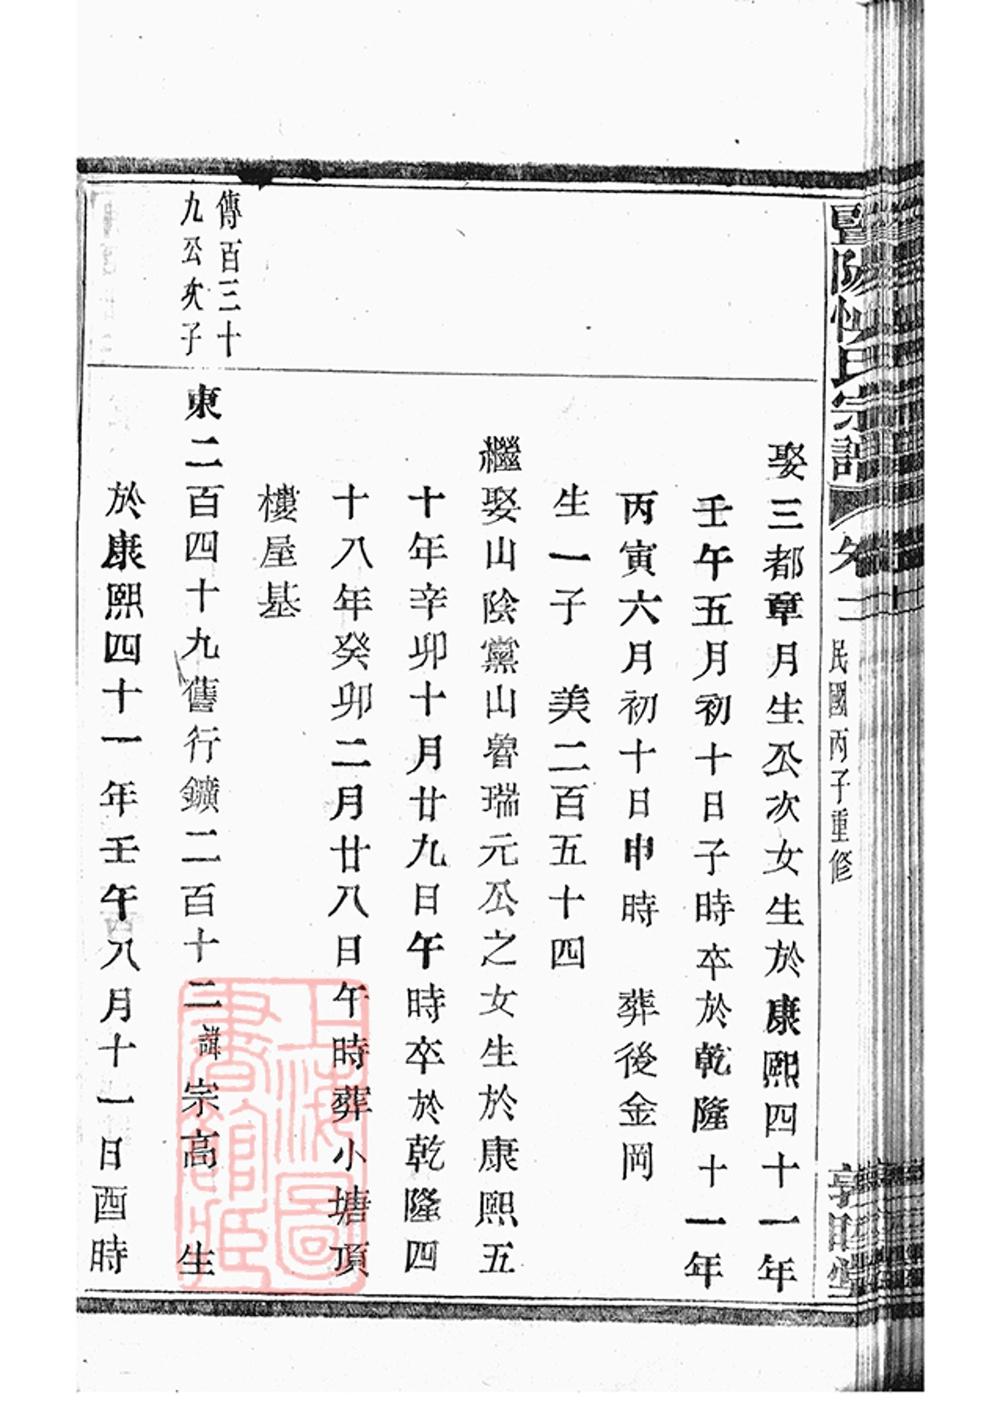 暨陽 氏宗譜 卷二 民國丙子重修
娶三都章月生公次女生於康熙四十一年
壬午五月初十日子時卒於乾隆十一年
丙寅六月初十日申時 葬後金岡
生一子 美二百五十四
繼娶山陰黨山魯瑞元公之女生於康熙五
十年辛卯十月廿九日午時卒於乾隆四
十八年癸卯二月廿八日午時葬小塘頂
樓屋基
傳百三十
九公次子
東二百四十九舊行鑛二百十二諱宗高 生
於康熙四十一年壬午八月十一日酉時
上海圖
書館藏